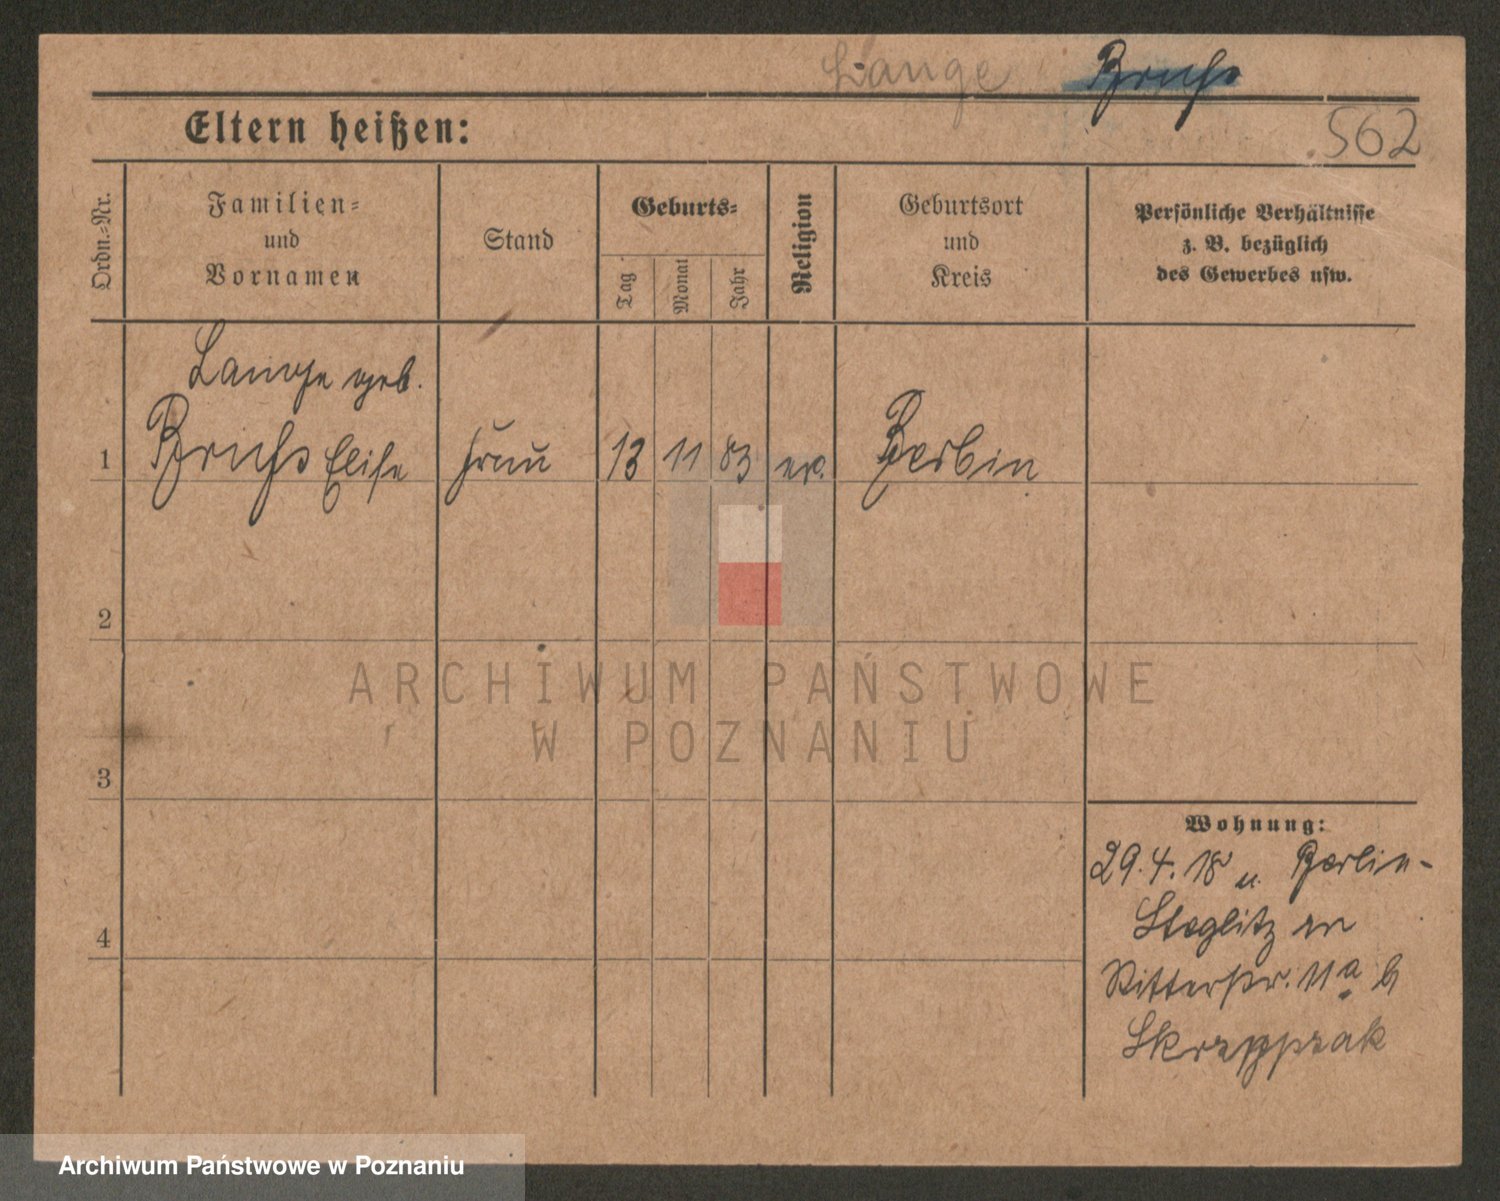 Lange
562
Eltern heißen:
Ordn.-Nr.
Familien-
und
Vornamen
Stand
Geburts-
Tag
Monat
Jahr
Religion
Geburtsort
und
Kreis
Persönliche Verhältnisse
z. B. bezüglich
des Gewerbes usw.
Lange geb.
1 Elise Frau 13 11 83 ev. Berlin
2
3
4
Wohnung:
29.4.18 n. Berlin-
Steglitz
Ritterstr. 11a b
ARCHIWUM PAŃSTWOWE
W POZNANIU
Archiwum Państwowe w Poznaniu